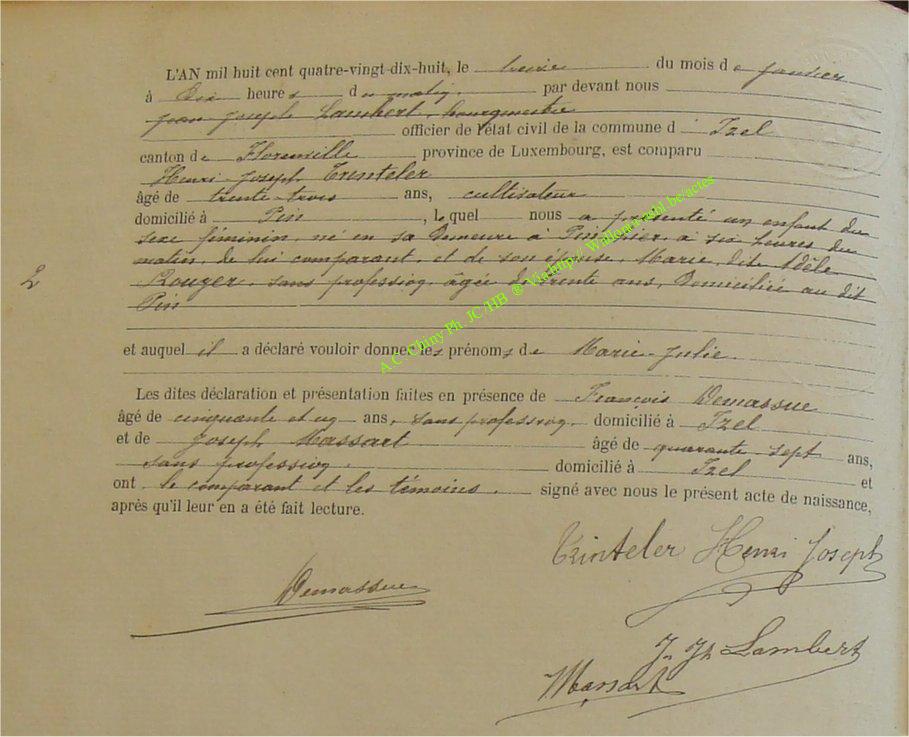 L'AN mil huit cent quatre-vingt-dix-huit, le treize du mois de janvier
à dix heures du matin, par devant nous
Jean Joseph Lambert, bourgmestre
officier de l'état civil de la commune d' Izel
canton de Florenville province de Luxembourg, est comparu
Henri-Joseph Trinteler
âgé de trente-trois ans, cultivateur
domicilié à Pin, lequel nous a présenté un enfant du
sexe féminin, né en sa demeure à Pin, hier, à six heures du
matin, de lui comparant, et de son épouse, Marie, dite Adèle
Rouyer, sans profession, âgée de trente ans, domiciliée au dit
Pin
2
et auquel il a déclaré vouloir donner les prénoms de Marie-Julie.
Les dites déclaration et présentation faites en présence de François Demassue
âgé de cinquante et un ans, sans profession, domicilié à Izel
et de Joseph Massart âgé de quarante-sept ans,
sans profession, domicilié à Izel et
ont le comparant et les témoins, signé avec nous le présent acte de naissance,
après qu'il leur en a été fait lecture.
Trinteler Henri Joseph
Demassue
J. Jh Lambert
Massart
A.C. Chiny Ph. JC/HB ®